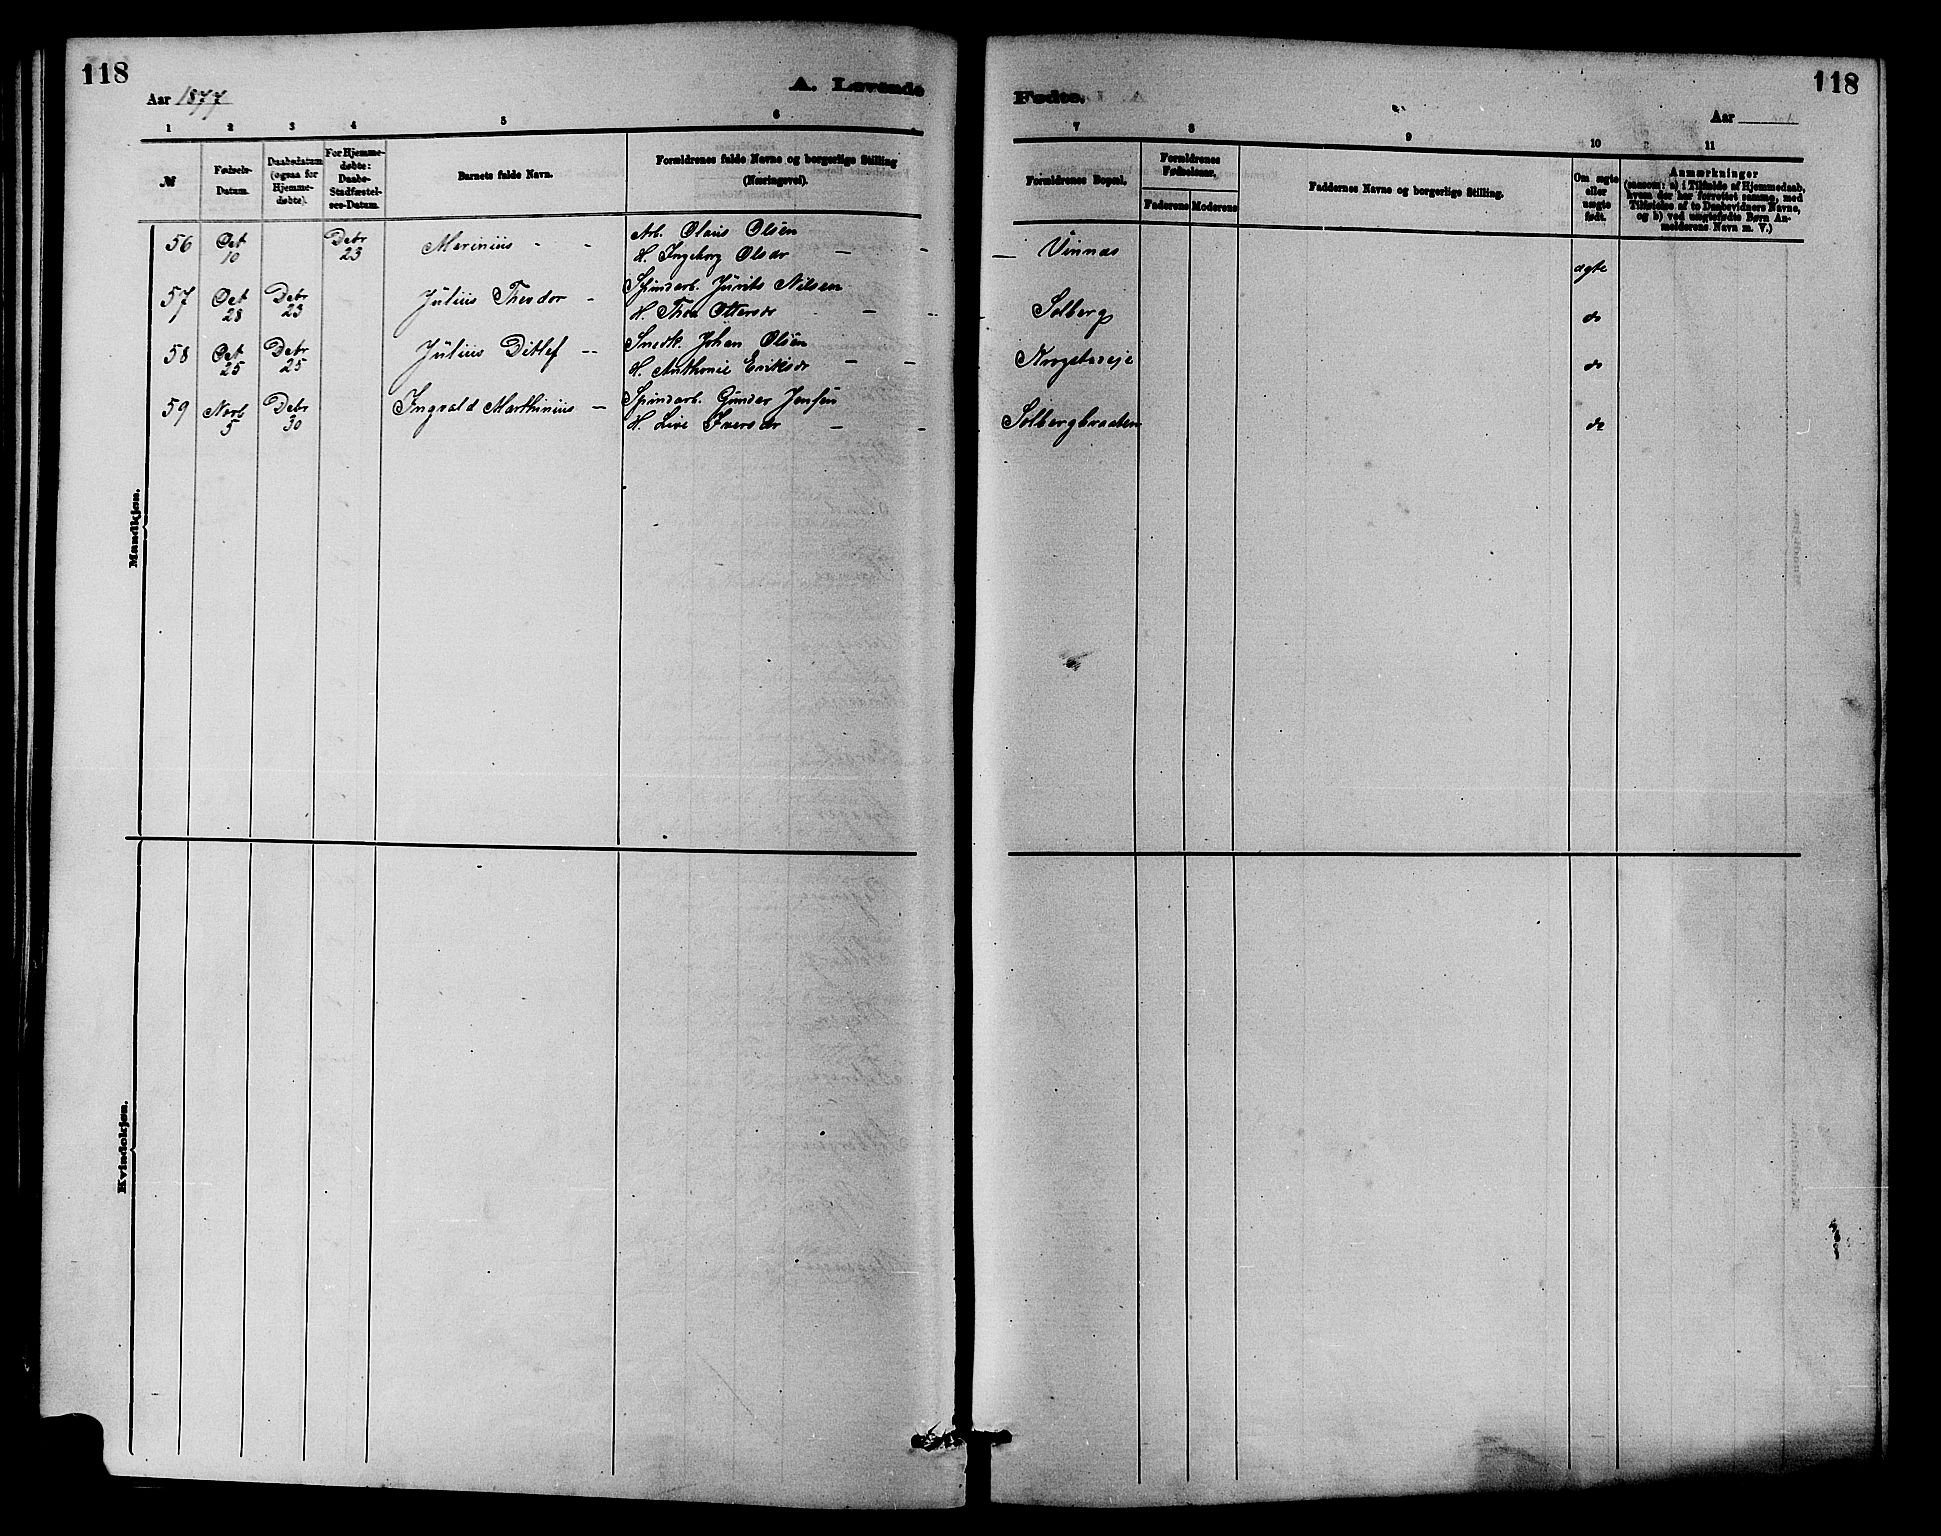 118
Aar 1877
A. Levende
1 2 3 4 5 6
№
Fødsels-
Datum.
Daabsdatum
(ogsaa for
Hjemme-
døbte).
For Hjemme-
døbte:
Daabs-
Stadfæstel-
ses-Datum.
Barnets fulde Navn.
Forældrenes fulde Navne og borgerlige Stilling
(Næringsvei).
Mandkjøn.
56 Oct 10 Debr 23 Marinius - - Arb. Olaus Olsen
H. Ingeborg Olsdr —
57 Oct 28 Debr 23 Julius Theodor - Spindarb. Jurits Nilsen
H. Thea Ottersdr - — -
58 Oct 25 Debr 25 Julius Ditlef -- Snedk. Johan Olsen
H. Anthonie Eriksdr — -
59 Novb 5 Debr 30 Ingvald Marthinius — Spindarb. Gunder Jensen
H. Live Iversdr — -
Kvindekjøn.
118
Fødte.
Aar
7 8 9 10 11
Forældrenes Bopæl.
Forældrenes
Fødselsaar.
Faderens Moderens
Faddernes Navne og borgerlige Stilling.
Om ægte
eller
uægte
født.
Anmærkninger
(saasom: a) i Tilfælde af Hjemmedaab,
hvem der har forrettet samme, med
Tilføielse af to Daabsvidners Navne,
og b) ved uægtefødte Børn An-
melderens Navn m. V.)
— Vinnæs
ægte
Solberg do
Krogstadeje do
Solbergbraaten do